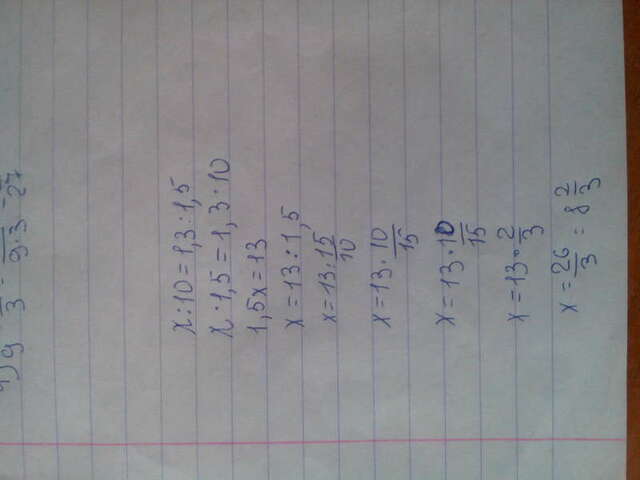 x:10=1,3:1,5
x·1,5=1,3·10
1,5x=13
x=13:1,5
x=13:15/10
x=13·10/15
x=13·10/15
x=13·2/3
x=26/3=8 2/3